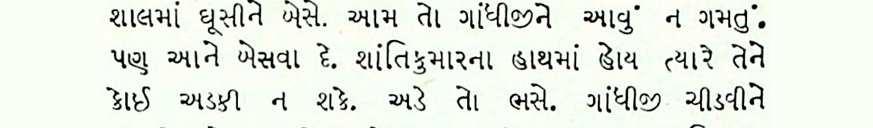 શાલમાં ઘૂસીને બેસે. આમ તો ગાંધીજીને આવું ન ગમતું.
પણ આને બેસવા દે. શાંતિકુમારના હાથમાં હોય ત્યારે તેને
કોઈ અડકી ન શકે. અડે તો ભસે. ગાંધીજી ચીડવીને